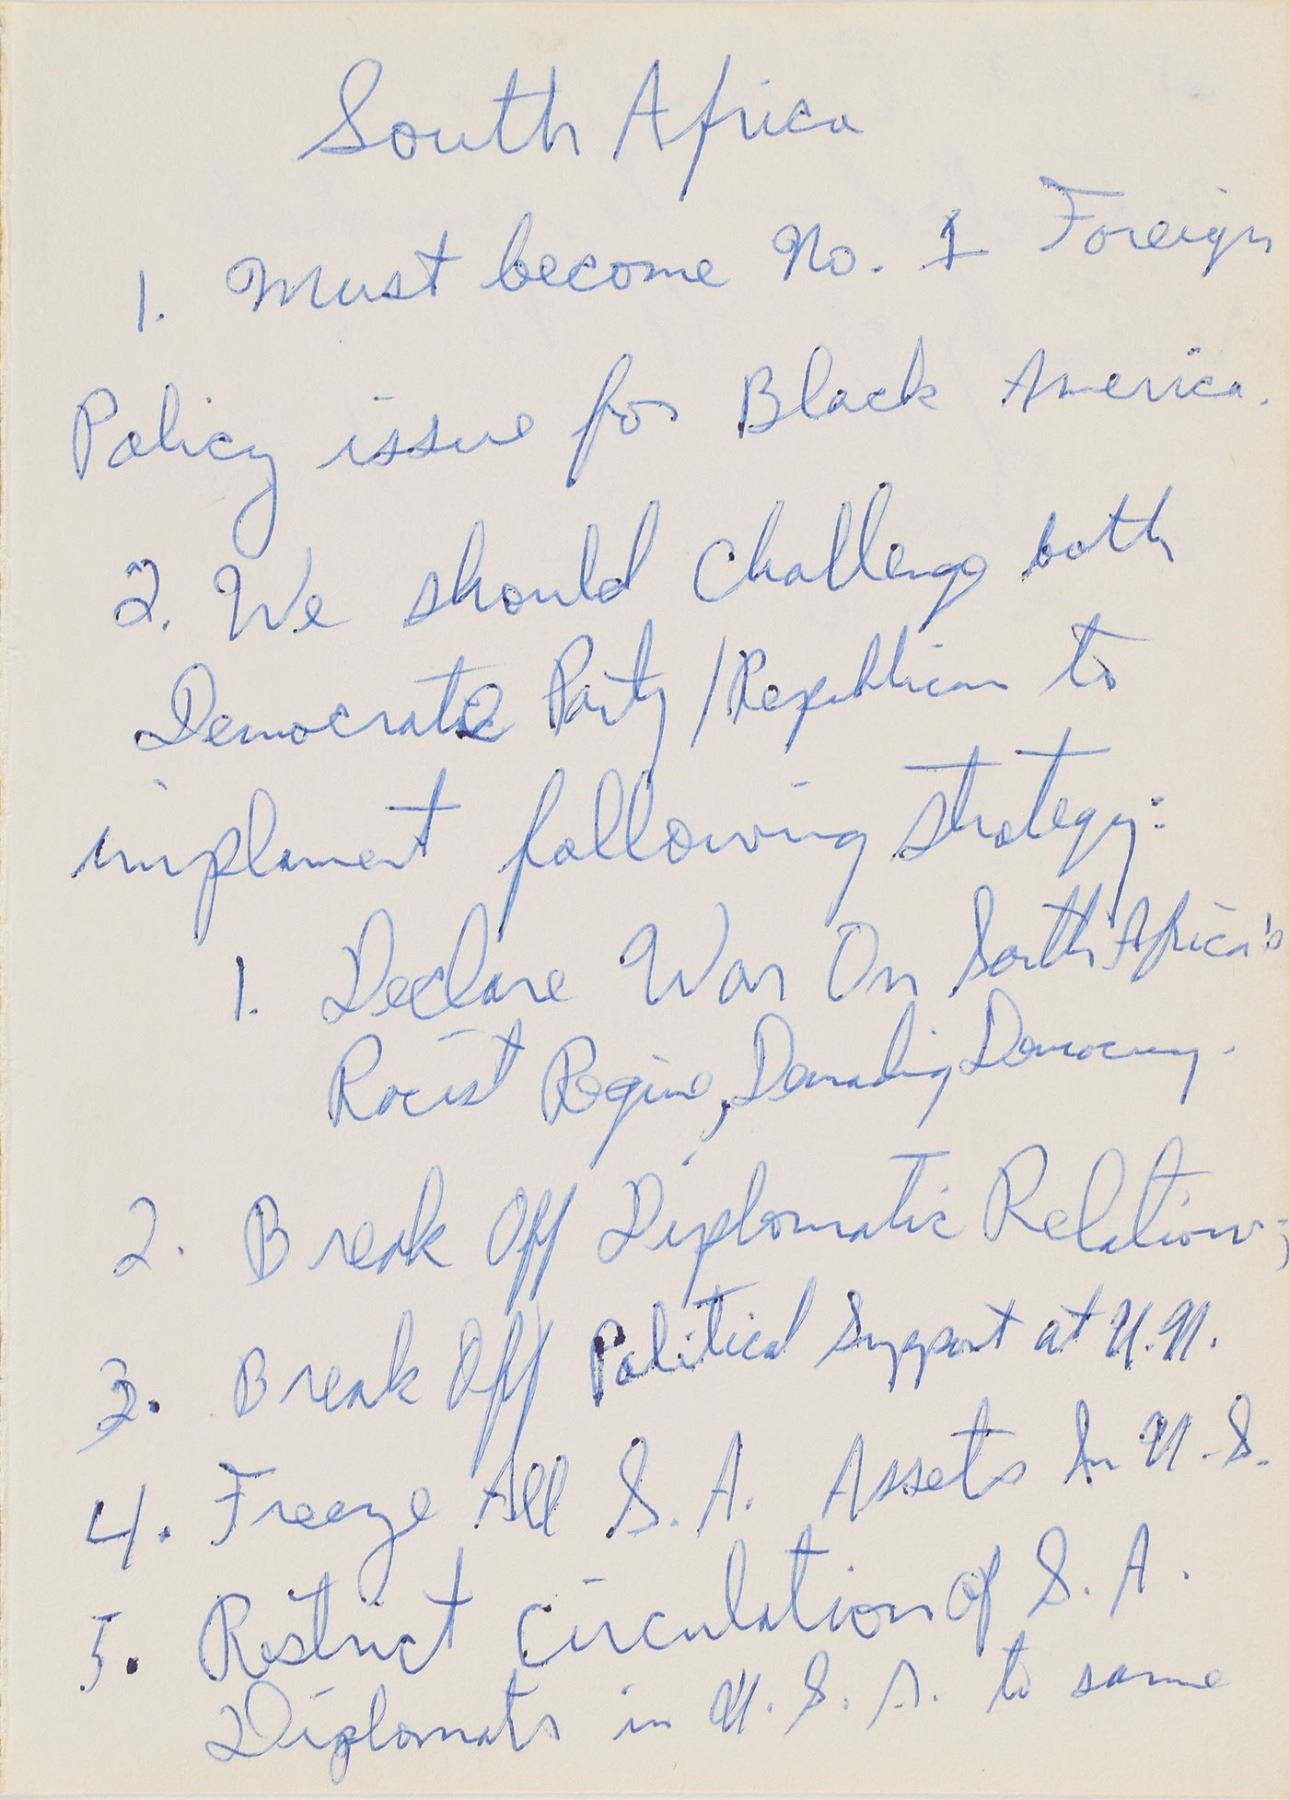 South Africa
1. Must become No. 1 Foreign
Policy issue for Black America.
2. We should challenge both
Democratic Party / Republican to
implement following strategy:
1. Declare War On South Africa's
Racist Regime, Demanding Democracy.
2. Break Off Diplomatic Relations;
3. Break Off Political Support at U.N.
4. Freeze All S. A. Assets In U.S.
5. Restrict circulation of S. A.
Diplomats in U.S.A. to same